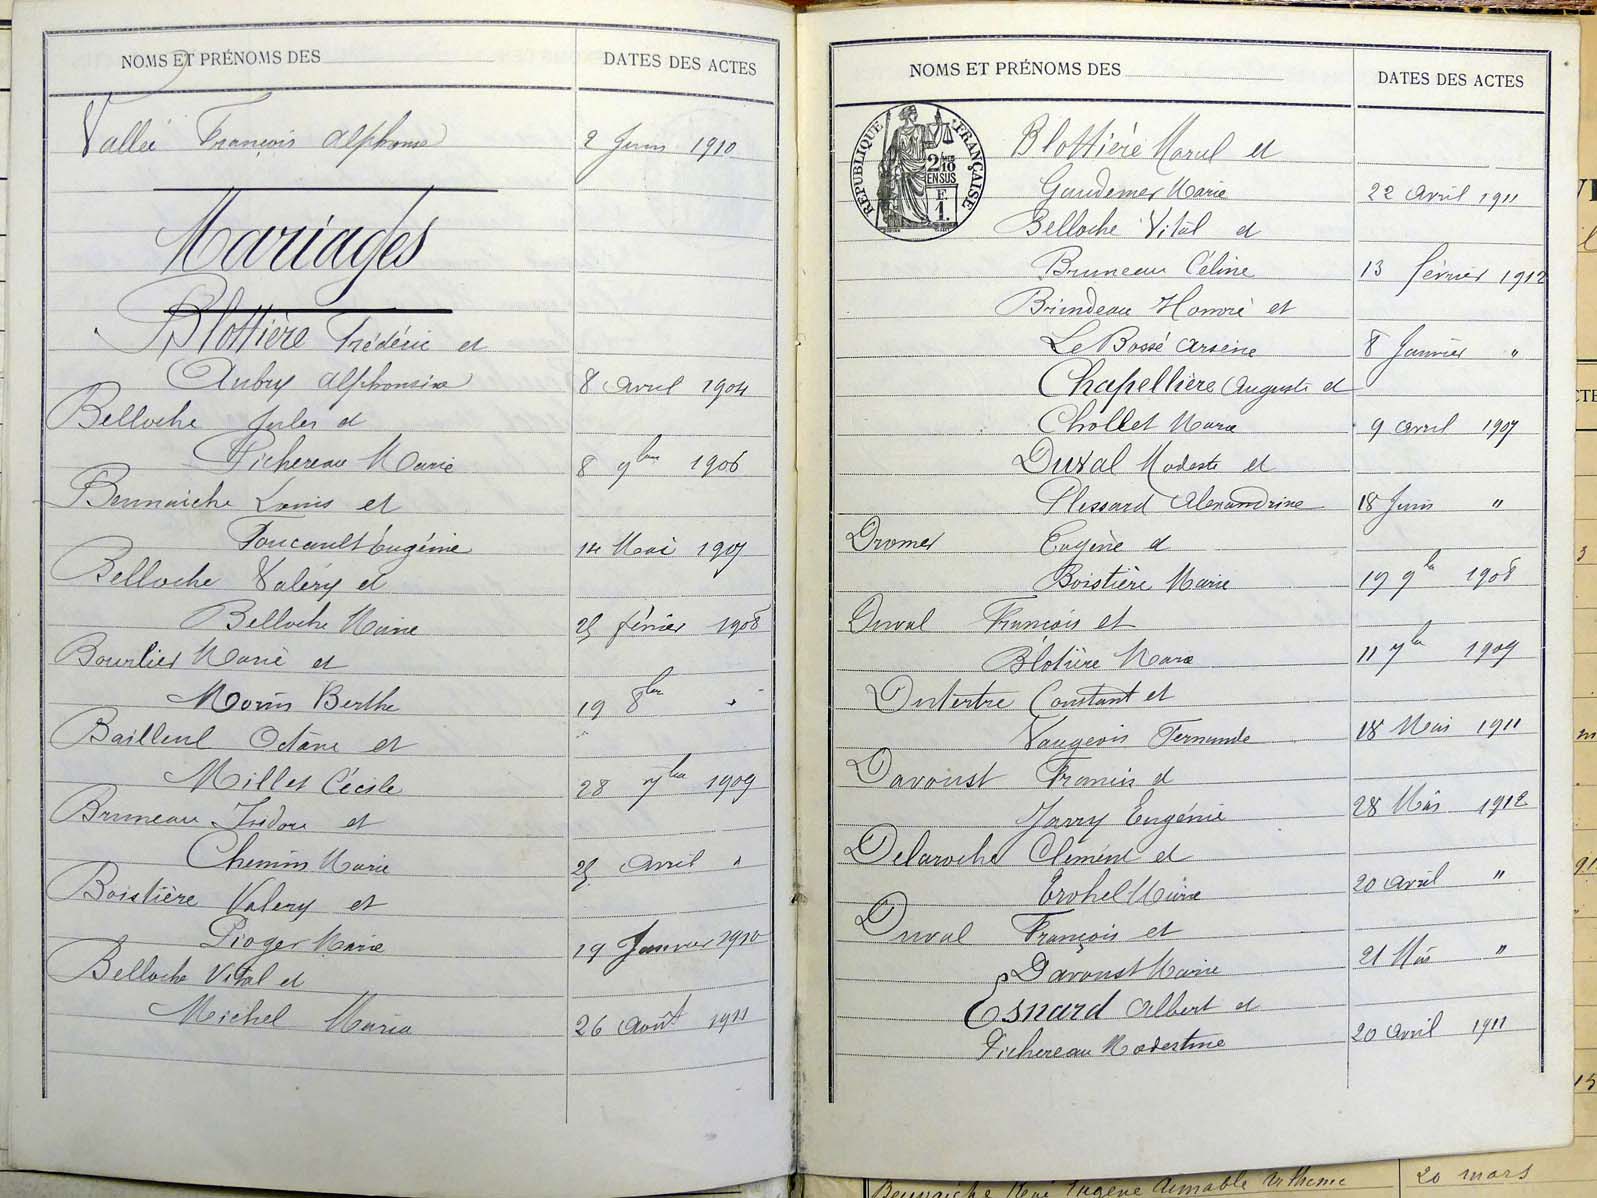 NOMS ET PRÉNOMS DES
DATES DES ACTES
Vallée François Alphonse 2 Juin 1910
Mariages
Blottière Frédéric et
Aubry Alphonsine 8 avril 1904
Belloche Jules et
Pichereau Marie 8 9bre 1906
Beunaiche Louis et
Foucault Eugénie 14 Mai 1907
Belloche Valéry et
Belloche Marie 25 février 1908
Bourlier Marie et
Morin Berthe 19 8bre "
Bailleul Octave et
Millet Cécile 28 7bre 1909
Bruneau Isidore et
Chemin Marie 25 avril "
Boistière Valery et
Pioger Marie 19 Janvier 1910
Belloche Vital et
Michel Maria 26 Août 1911
NOMS ET PRÉNOMS DES
DATES DES ACTES
RÉPUBLIQUE FRANÇAISE
2/10
EN SUS
F.
1.
Blottière Marcel et
Gaudemer Marie 22 avril 1911
Belloche Vital et
Bruneau Céline 13 février 1912
Brindeau Honoré et
Le Bossé Arsène 8 Janvier "
Chapellière Auguste et
Chollet Marie 9 avril 1907
Duval Modeste et
Plessard Alexandrine 18 Juin "
Dromer Eugène et
Boistière Marie 19 9bre 1908
Duval François et
Blotière Marie 11 7bre 1909
Dutertre Constant et
Vaugeois Fernande 18 Mai 1911
Davoust Francis et
Jarry Eugénie 28 Mai 1912
Delaroche Clément et
Erohel Marie 20 avril "
Duval François et
Davoust Marie 21 Mai "
Esnard Albert et
Pichereau Modestine 20 avril 1911
Beunaiche René Eugène Aimable
20 mars